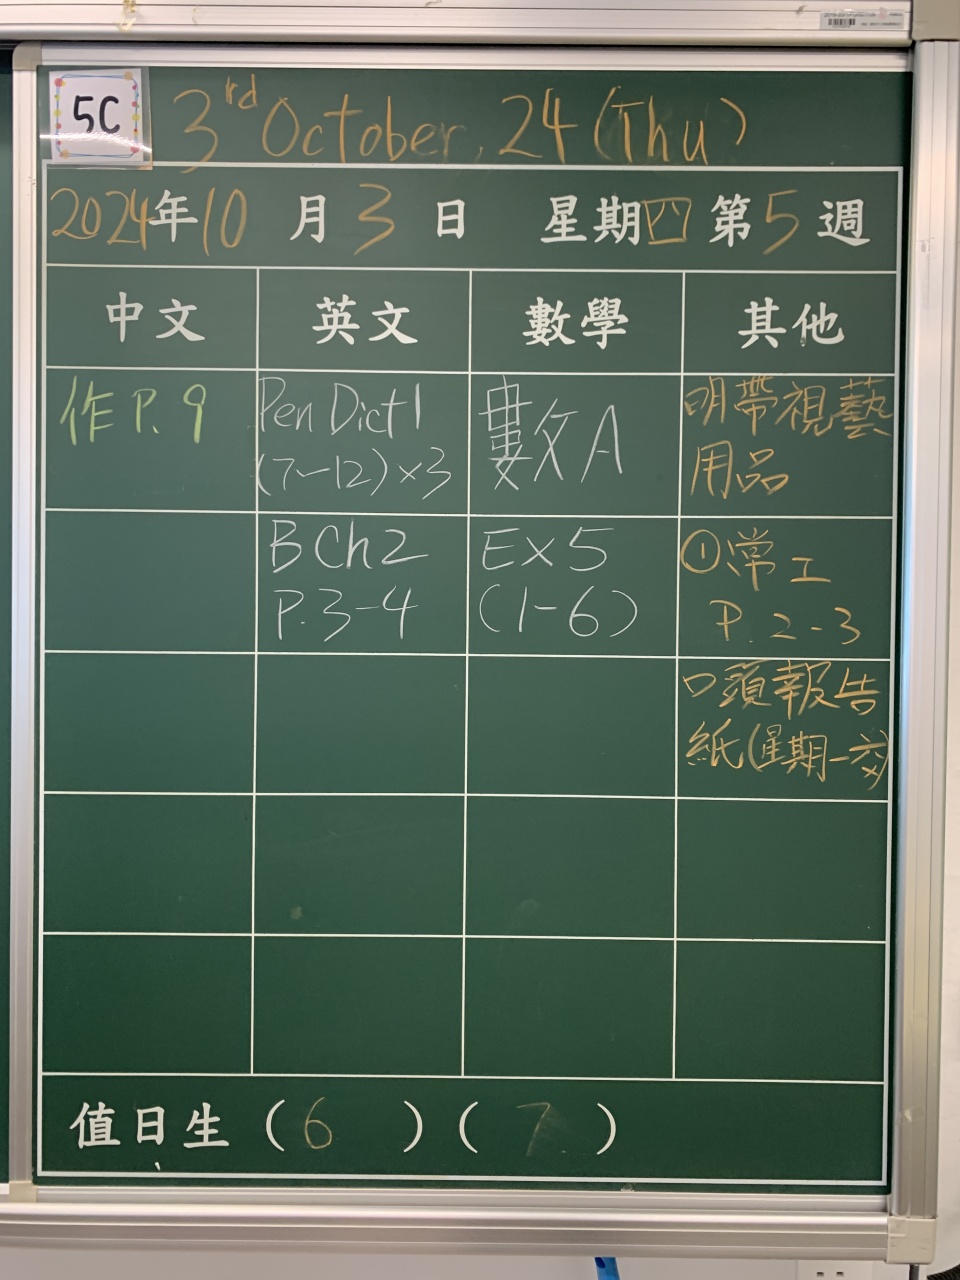 5C
3rd October, 24 (Thu)
2024年10月3日 星期四 第5週
中文 英文 數學 其他
作 P. 9
Pen Dict 1
(7-12) x3
數 A
明帶視藝
用品
B Ch2
P. 3-4
Ex 5
(1-6)
①常工
P. 2-3
口頭報告
紙(星期一交)
值日生 (6) (7)